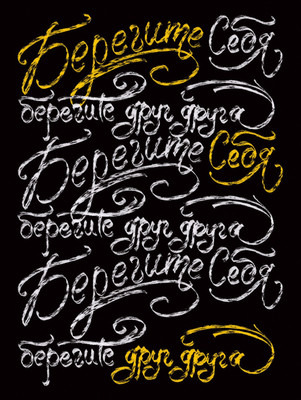 Берегите Себя
берегите друг друга
Берегите Себя
берегите друг друга
Берегите Себя
берегите друг друга